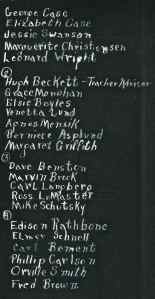 George Case
Elizabeth Case
Jessie Swanson
Marguerite Christiansen
Leonard Wright
(2)
Hugh Beckett - Teacher Advisor
Grace Monahan
Elsie Boyles
Venetta Lund
Agnes Mensik
Berniece Asplund
Margaret Griffith
(3)
Dave Benston
Marvin Brock
Carl Landberg
Ross L. Master
Mike Schutsky
(4)
Edison Rathbone
Elmer Schnell
Carl Bement
Phillip Carlson
Orville Smith
Fred Brown